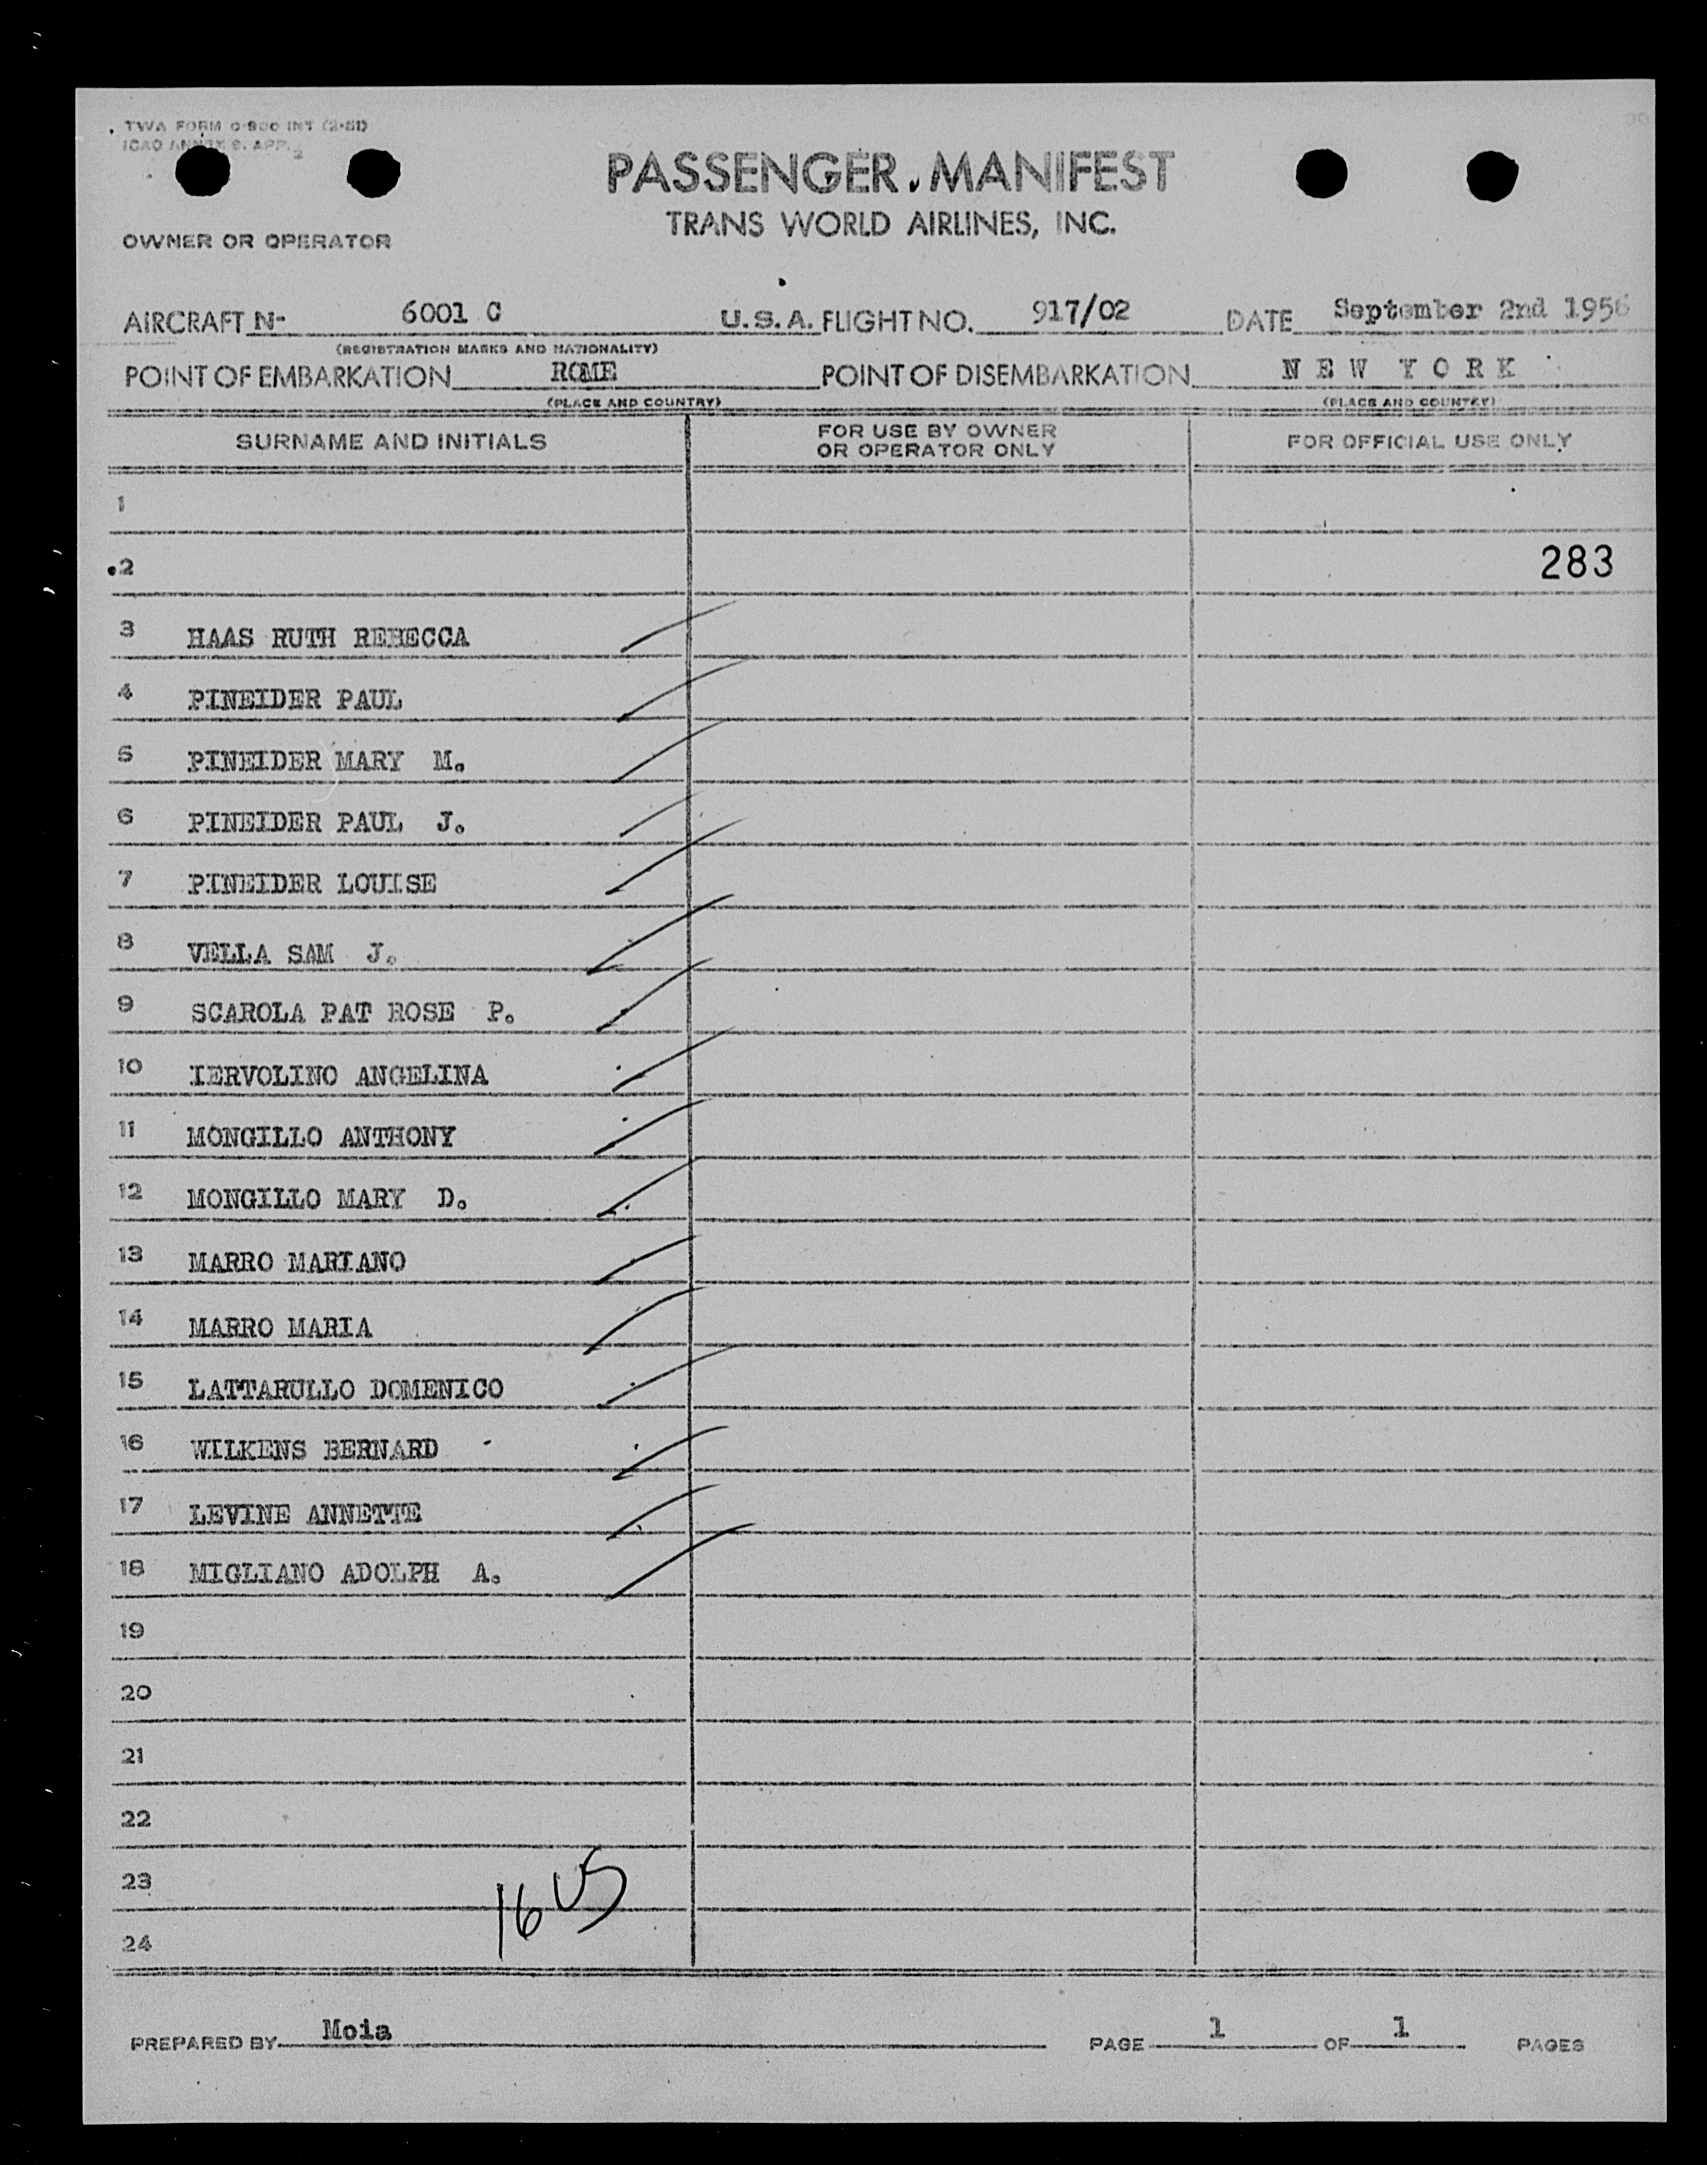 TWA FORM 0-800 INT (2-51)
ICAO ANNEX 9. APP. 2
PASSENGER MANIFEST
TRANS WORLD AIRLINES, INC.
OWNER OR OPERATOR
AIRCRAFT N- 6001 C U.S.A. FLIGHT NO. 917/02 DATE September 2nd 1956
(REGISTRATION MARKS AND NATIONALITY)
POINT OF EMBARKATION ROME POINT OF DISEMBARKATION N E W Y O R K
(PLACE AND COUNTRY) (PLACE AND COUNTRY)
SURNAME AND INITIALS FOR USE BY OWNER OR OPERATOR ONLY FOR OFFICIAL USE ONLY
1
2 283
3 HAAS RUTH REBECCA
4 PINEIDER PAUL
5 PINEIDER MARY M.
6 PINEIDER PAUL J.
7 PINEIDER LOUISE
8 VELLA SAM J.
9 SCAROLA PAT ROSE P.
10 IERVOLINO ANGELINA
11 MONGILLO ANTHONY
12 MONGILLO MARY D.
13 MARRO MARIANO
14 MARRO MARIA
15 LATTARULLO DOMENICO
16 WILKENS BERNARD
17 LEVINE ANNETTE
18 MIGLIANO ADOLPH A.
19
20
21
22
23
16 US
24
PREPARED BY Moia PAGE 1 OF 1 PAGES